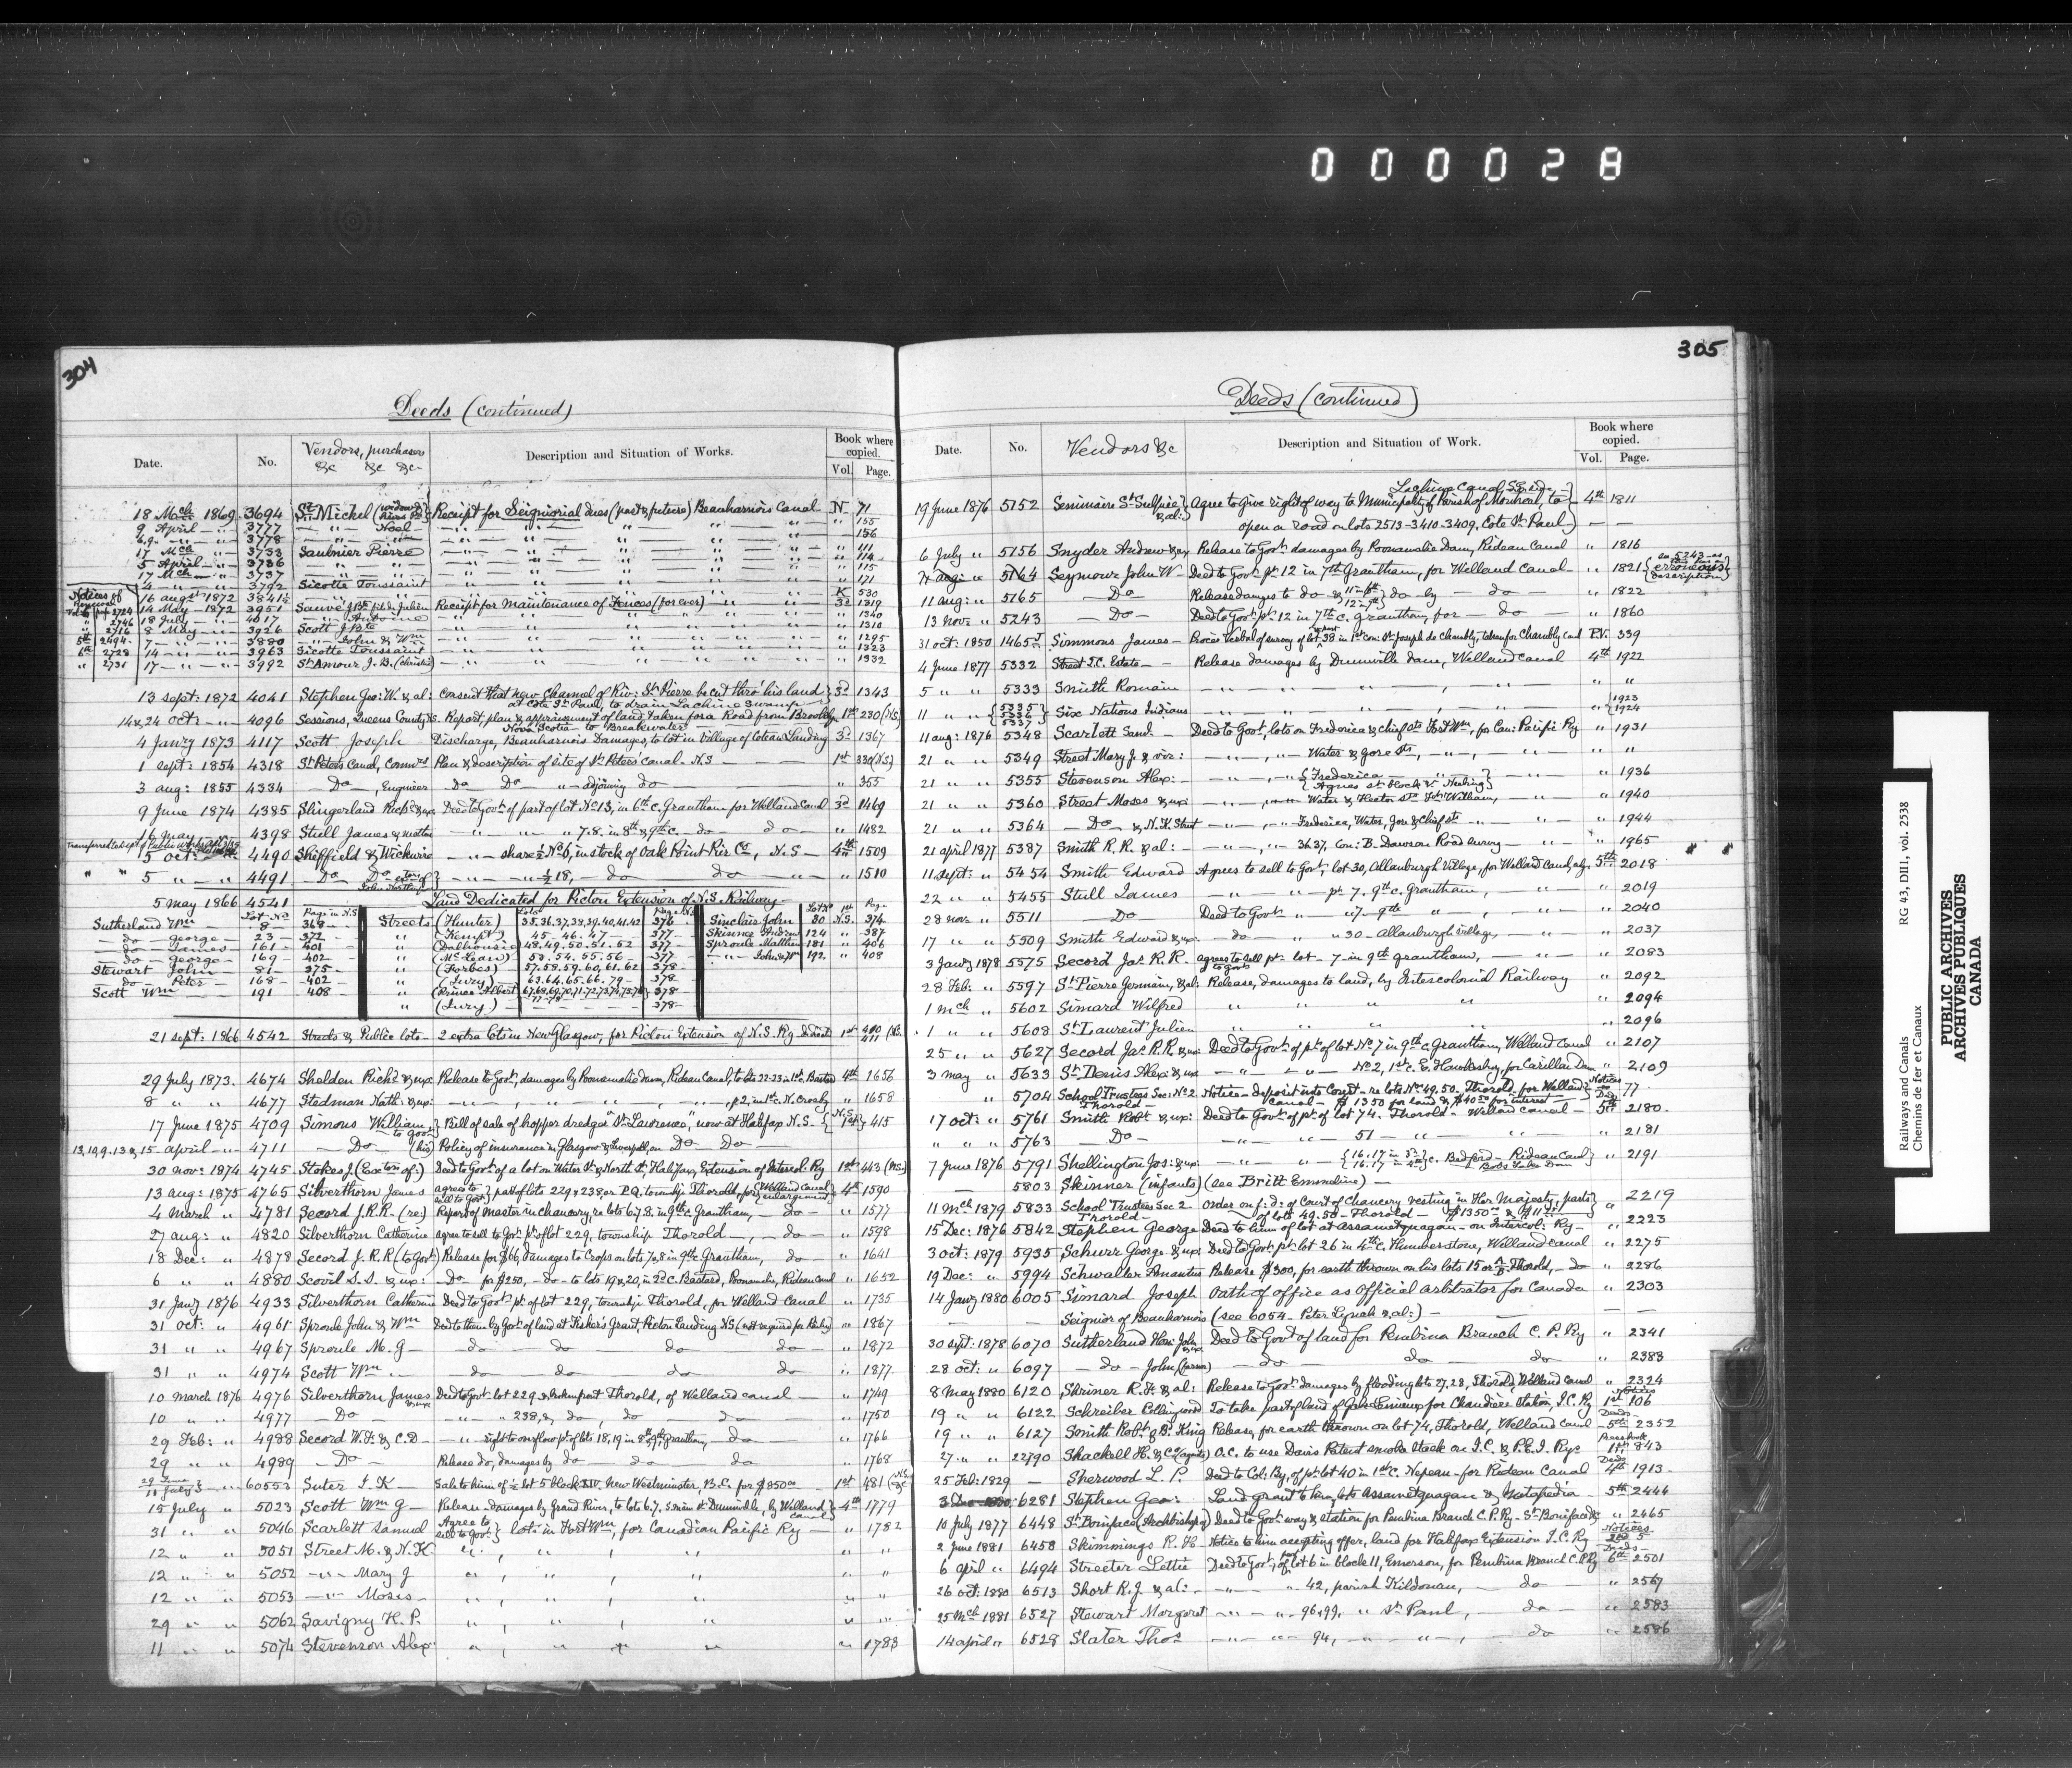 000028
304
Deeds (continued)
Date. No. Vendors, purchasers &c &c &c- Description and Situation of Works. Book where copied. Vol. Page.
18 Mch 1869 3694 St Michel (widow) Receipt for Seigniorial dues (past & future) Beauharnois Canal N 71
9 April 3777 Noel 155
3778 156
17 Mch 3733 Saulnier Pierre 111
5 April 3736 114
17 Mch 3737 115
4 3792 Sicotte Toussaint 171
Notices of
16 augst 1872 3841½ K 530
14 May 1872 3951 Sauvé J. Bte fils de Julien Receipt for Maintenance of Fences (for ever) 3d 1319
2746 18 July 4017 Antoine 1340
2716 8 May 3926 Scott J. Bte 1310
5th 2494 7 3880 John & Wm 1295
6th 2728 14 3963 Sicotte Toussaint 1323
2731 17 3992 St Amour J. B. (christie) 1332
13 sept: 1872 4041 Stephen Geo: W. & al: Consent that new Channel of Riv: St Pierre be cut thro' his land 3d 1343
at Cote St Paul, to drain Lachine Swamp
14 & 24 oct: 4096 Sessions, Queens County N.S. Report, plan & appraisement of land taken for a Road from Brooklyn 1st 230 (N.S.)
Nova Scotia to Breakwater
4 Janry 1873 4117 Scott Joseph Discharge, Beauharnois Damages, to lot in Village of Coteau Landing 3d 1367
1 sept: 1854 4318 St Peters Canal, Commrs Plan & description of site of St Peters Canal - N.S 1st 330 (N.S.)
3 aug: 1855 4334 Do, Engineer Do Do adjoining do 355
9 June 1874 4385 Slingerland Richd & ux Deed to Govt of part of lot No 13, in 6th c. Grantham for Welland Canal 3d 1469
16 May 4398 Stull James & mother 7.8. in 8th & 9th c. do do 1482
5 oct: 4490 Sheffield & Wickwire share ½ No 6, in stock of Oak Point Pier Co, N.S 4th 1509
5 4491 Do Do ½ 18, do do 1510
5 May 1866 4541 Land Dedicated for Pictou Extension of N.S. Railway
Lot No Page in N.S. Lots Page N.S. Lot No 1st Page
Sutherland Wm 8 368 Streets (Hunter) 35,36,37,38,39,40,41,42 376 Sinclair John 30 N.S. 374
do George 23 372 (Kempt) 45.46.47 377 Skinner Andrew 124 387
do James 161 401 (Dalhousie) 48.49.50.51.52 377 Sproule Matthew 181 406
do George 169 402 (McLean) 53.54.55.56 377 John & Wm 192 408
Stewart John 81 375 (Forbes) 57.58.59.60,61.62 378
do Peter 168 402 (Ivry) 63.64.65.66.79 378
Scott Wm 191 408 (Prince Albert) 378
(Ivry) 378
21 sept: 1866 4542 Streets & Public lots 2 extra lots in New Glasgow, for Pictou Extension of N.S. Ry 1st 411
29 July 1873. 4674 Shelden Richd & ux: Release to Govt, damages by Poonamalie Dam, Rideau Canal, to lots 22-23 in 1st c. Bastard 4th 1656
8 4677 Stedman Nath: & ux: p. 2, in 1st c. N. Crosby 1658
17 June 1875 4709 Simons William to Govt Bill of sale of hopper dredger "St Lawrence", now at Halifax N.S. N.S. 1st 415
13,10,9.13 & 15 april 4711 Do (his) Policy of insurance in Glasgow & Liverpool, on Do Do
30 nov: 1874 4745 Stokes J. (Exctors of:) Deed to Govt of a lot on Water St & North St, Halifax, Extension of Intercol: Ry 1st 443 (N.S.)
13 aug: 1875 4765 Silverthorn James agrees to sell to Govt part of lots 229 & 238, or P.Q., township Thorold, for (Welland Canal enlargement) 4th 1590
4 March 4781 Secord J.R.R. (re:) Report of Master in Chancery, re lots 6.7.8. in 9th c. Grantham, do 1577
27 aug: 4820 Silverthorn Catherine agree to sell to Govt pt of lot 229, township Thorold, do 1598
18 Dec: 4878 Secord J.R.R (to Govt) Release for $66, damages to Crops on lots 7 & 8 in 9th c. Grantham, do 1641
6 4880 Scovil S.S. & ux: do for $250, do to lots 19 & 20, in 2d c. Bastard, Poonamalie, Rideau Canal 1652
31 Janry 1876 4933 Silverthorn Catherine Deed to Govt pt of lot 229, township Thorold, for Welland Canal 1735
31 oct: 4961 Sproule John & Wm Deed to them by Govt of land at Fisher's Grant, Pictou Landing N.S (not required for Railway) 1867
31 4967 Sproule M. G do do do do 1872
31 4974 Scott Wm do do do do 1877.
10 March 1876 4976 Silverthorn James & ux Deed to Govt lot 229 & broken front Thorold, of Welland canal 1749
10 4977 Do 238, & do, do do 1750
29 Feb: 4988 Secord W.H: & C.D right to overflow pt of lots 18,19 in 8th & 9th Grantham, do 1766
29 4989 Do Release do, damages by do do do 1768
29 June 11 July 60553 Suter J. K Sale to him of ½ lot 5 block XIV. New Westminster, B.C. for $850.00 1st 481
15 July 5023 Scott Wm G Release damages by Grand River, to lots 6.7, S. main St. Dunnville, by Welland canal 4th 1779
31 5046 Scarlett Samuel Agree to sell to Govt lots in Fort Wm, for Canadian Pacific Ry 1782
12 5051 Street M. & N.K.
12 5052 Mary J
12 5053 Moses
29 5062 Savigny H. P.
11 5074 Stevenson Alex: 1783
305
Deeds (continued)
Date. No. Vendors &c Description and Situation of Work. Book where copied. Vol. Page.
Lachine Canal
19 June 1876 5152 Seminaire St Sulpice & al: Agree to Give right of way to Municipality of Parish of Montreal, to 4th 1811
open a road on lots 2513-3410-3409, Cote St Paul
6 July 5156 Snyder Andrew & ux Release to Govt: damages by Poonamalie Dam, Rideau Canal 1816
aug: 5164 Seymour John W Deed to Govt pt 12 in 7th Grantham, for Welland Canal 1821 erroneous description
11 aug: 5165 Do Release damages to do & 11 in 6th 12 in 7th do by do 1822
13 nov: 5243 Do Deed to Govt pt 12 in 7th c. Grantham, for do 1860
31 oct: 1850 1465 Simmons James Procès Verbal of survey of lot 38 in 1st con: St Joseph de Chambly, taken for Chambly Canal P.V. 339
4 June 1877 5332 Street T.C. Estate Release damages by Dunnville dam, Welland Canal 4th 1922
5 5333 Smith Romain
11 5335 5336 5337 Six Nations Indians 1923 1924
11 aug: 1876 5348 Scarlett Saml Deed to Govt, lots on Frederica & Chief sts Fort Wm, for Can: Pacific Ry 1931
21 5349 Street Mary J. & vir: Water & Gore sts,
21 5355 Stevenson Alex: Frederica 1936
21 5360 Street Moses & ux: Water & Hector sts Fort William, 1940
21 5364 Do & N.K. Street Frederica, Water, Gore & Chief sts 1944
21 april 1877 5387 Smith R. R. & al: 36.37, Con: B. Dawson Road survey 1965
11 sept: 5454 Smith Edward Agrees to sell to Govt, lot 30, Allanburgh Village, for Welland Canal 5th 2018
22 5455 Stull James pt 7. 9th c. Grantham, 2019
28 nov: 5511 Do Deed to Govt 7. 9th 2040
17 5509 Smith Edward & ux: do 30 - Allanburgh village, 2037
3 Janry 1878 5575 Secord Jas R.R. agrees to sell to Govt pt lot 7 in 9th Grantham, 2083
28 Feb: 5597 St Pierre Germain, & al: Release, damages to land, by Intercolonial Railway 2092
1 Mch 5602 Simard Wilfred 2094
1 5608 St Laurent Julien 2096
25 5627 Secord Jas R.R. & ux: Deed to Govt of pt of lot No 7 in 9th c. Grantham, Welland Canal 2107
3 May 5633 St Denis Alex: & ux No 2, 1st c. E. Hawkesbury, for Carillon Dam 2109
5704 School Trustees Sec: No 2 Thorold Notice - deposit into Court - re lots No 49.50. Thorold, for Welland Notices 77.
Canal - $1350 for land & $40.50 for interest
17 oct: 5761 Smith Robt & ux: Deed to Govt of pt of lot 74. Thorold - Welland Canal 5th 2180.
5763 Do 51 2181
7 June 1876 5791 Shellington Jos: & ux: 16.17 in 3d 16.17 in 4th c. Bedford - Rideau Canal Bobs Lake Dam 2191
5803 Skinner (infants) (see Britt Emmeline)
11 Mch 1879 5833 School Trustees Sec 2 Thorold Order of Court of Chancery vesting in Her Majesty, parts 2219
of lots 49.50 - Thorold
15 Dec: 1876 5842 Stephen George Deed to him of lot at Assametquagan - on Intercol: Ry 2223
3 oct: 1879 5935 Schurr George & ux Deed to Govt pt lot 26 in 4th c. Humberstone, Welland Canal 2275
19 Dec: 5994 Schwaller Amantus Release $300, for earth thrown on his lots 15 Thorold, do 2286
14 Janry 1880 6005 Simard Joseph Oath of office as official arbitrator for Canada 2303
Seignior of Beauharnois (see 6054 - Peter Lynch & al:)
30 sept: 1878 6070 Sutherland Hon: John Deed to Govt of land for Pembina Branch C. P. Ry 2341
28 oct: 6097 do John do do do 2383
8 May 1880 6120 Shriner R. H. & al: Release to Govt: damages by flooding lots 27.28, Thorold, Welland Canal 2324
19 6122 Schreiber Collingwood To take part of land of Gabe Lemieux for Chaudiere Station, I.C. Ry Notices 1st 106
19 6127 Smith Robt & B. King Release, for earth thrown on lot 74, Thorold, Welland Canal Deeds 5th 2352
27 22790 Shackell H. & Co (agents) O.C. to use Davis Patent smoke stack on I.C. & P.E.I. Rys 843
25 Feb: 1829 Sherwood L. P. Deed to Col: By, of pt lot 40 in 1st c. Nepean - for Rideau Canal Deeds 4th 1913
6281 Stephen Geo: Land grant to him, lots Assametquagan & Metapedia 5th 2444
10 July 1877 6448 St Boniface (Archbishop of) Deed to Govt way & station for Pembina Branch C.P.Ry - St Boniface 2465
2 June 1881 6458 Skimmings R. H Notice to him accepting offer, land for Halifax Extension I.C. Ry Notices 2nd 5
6 april 6494 Streeter Lettie Deed to Govt, of lot 6 in block 11, Emerson, for Pembina Branch C.P.Ry Deeds 6th 2501
26 oct: 1880 6513 Short R.J. & al: 42, parish Kildonan, do 2567
25 Mch 1881 6527 Stewart Margaret 96 & 99, St Paul, do 2583
14 april 6528 Slater Thos 94, do 2586
Railways and Canals RG 43, DIII, vol. 2538
Chemins de fer et Canaux
PUBLIC ARCHIVES
ARCHIVES PUBLIQUES
CANADA